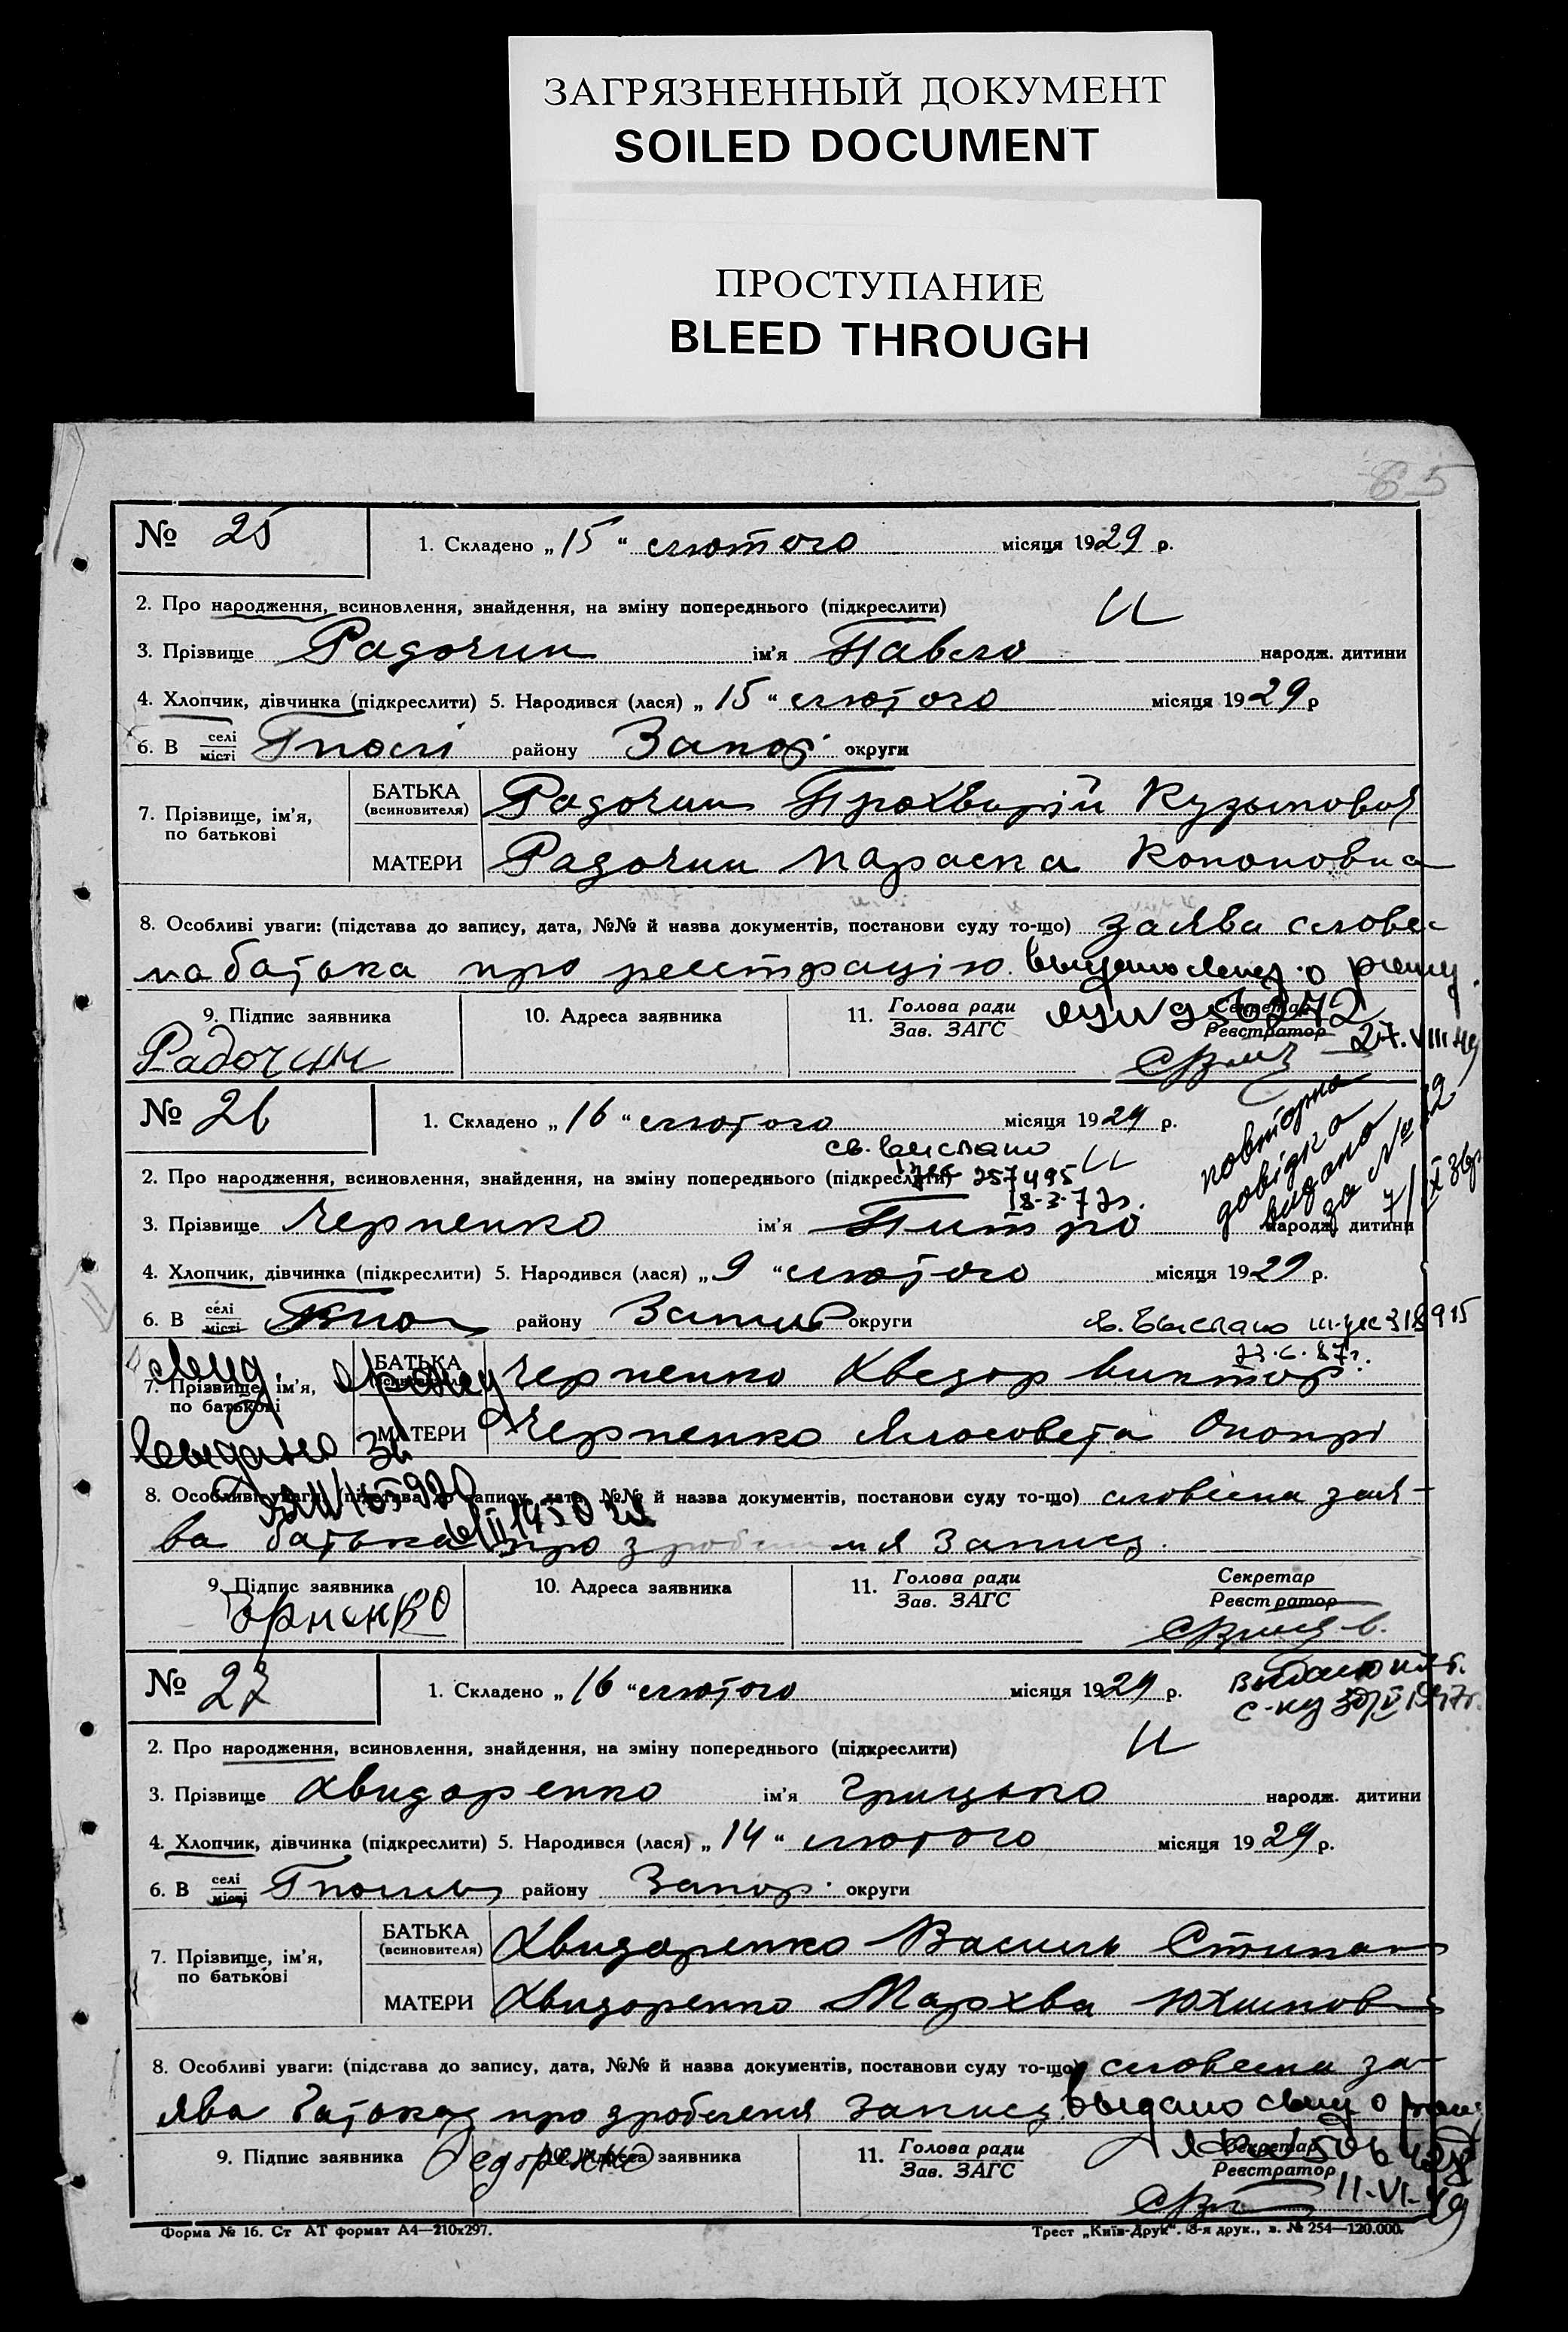 ЗАГРЯЗНЕННЫЙ ДОКУМЕНТ
SOILED DOCUMENT
ПРОСТУПАНИЕ
BLEED THROUGH
65
№ 25 1. Складено „15“ лютого місяця 1929 р.
2. Про народження, всиновлення, знайдення, на зміну попереднього (підкреслити)
3. Прізвище Радочин ім'я Павло народж. дитини
4. Хлопчик, дівчинка (підкреслити) 5. Народився (лася) „15“ лютого місяця 1929 р
6. В селі місті району Запор. округи
7. Прізвище, ім'я, по батькові
БАТЬКА (всиновителя) Радочин Прохвирій Кузьмович
МАТЕРИ Радочин Параска Кононовна
8. Особливі уваги: (підстава до запису, дата, №№ й назва документів, постанови суду то-що) заява словес
на батька про реєстрацію.
9. Підпис заявника 10. Адреса заявника 11. Голова ради Зав. ЗАГС Секретар Реєстратор
Радочин 27.VIII 49
№ 26 1. Складено „16“ лютого місяця 1929 р.
св. выслано
2. Про народження, всиновлення, знайдення, на зміну попереднього (підкреслити) 257495
18-3-77г.
повторна
довідка
видана
за № 12
3. Прізвище Черненко ім'я Питро народж. дитини
4. Хлопчик, дівчинка (підкреслити) 5. Народився (лася) „9“ лютого місяця 1929 р.
6. В селі місті району округи св. выслано 318915
23.6.87г.
7. Прізвище, ім'я, по батькові
БАТЬКА (всиновителя) Черненко Хведор Виктор.
МАТЕРИ Черненко Онопрі
8. Особливі уваги: (підстава до запису, дата, №№ й назва документів, постанови суду то-що) словесна зая-
ва батька про запись.
9. Підпис заявника 10. Адреса заявника 11. Голова ради Зав. ЗАГС Секретар Реєстратор
№ 27 1. Складено „16“ лютого місяця 1929 р.
2. Про народження, всиновлення, знайдення, на зміну попереднього (підкреслити)
3. Прізвище Хвидоренко ім'я Грицько народж. дитини
4. Хлопчик, дівчинка (підкреслити) 5. Народився (лася) „14“ лютого місяця 1929 р.
6. В селі місті району Запор. округи
7. Прізвище, ім'я, по батькові
БАТЬКА (всиновителя) Хвидоренко Василь Стипан
МАТЕРИ Хвидоренко Мархва Юхимов
8. Особливі уваги: (підстава до запису, дата, №№ й назва документів, постанови суду то-що) словесна за-
ява батька про зроблення запису. выдано
9. Підпис заявника 10. Адреса заявника 11. Голова ради Зав. ЗАГС Секретар Реєстратор
Федоренко 11-VI-49
Форма № 16. Ст АТ формат А4—210х297. Трест „Київ-Друк“. 3-я друк., з. № 254—120.000.